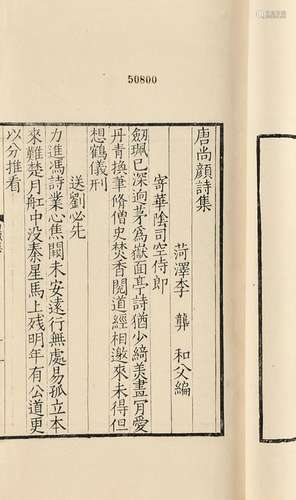 50800
唐尚顏詩集
菏澤李龏和父編
寄華陰司空侍郎
劔珮已深逈茅爲嶽面亭詩猶少綺美畫肎愛
丹青換筆脩僧史焚香閱道經相邀來未得但
想鶴儀刑
送劉必先
力進馮詩業心焦闕未安遠行無處易孤立本
來難楚月船中没秦星馬上殘明年有公道更
以分推看